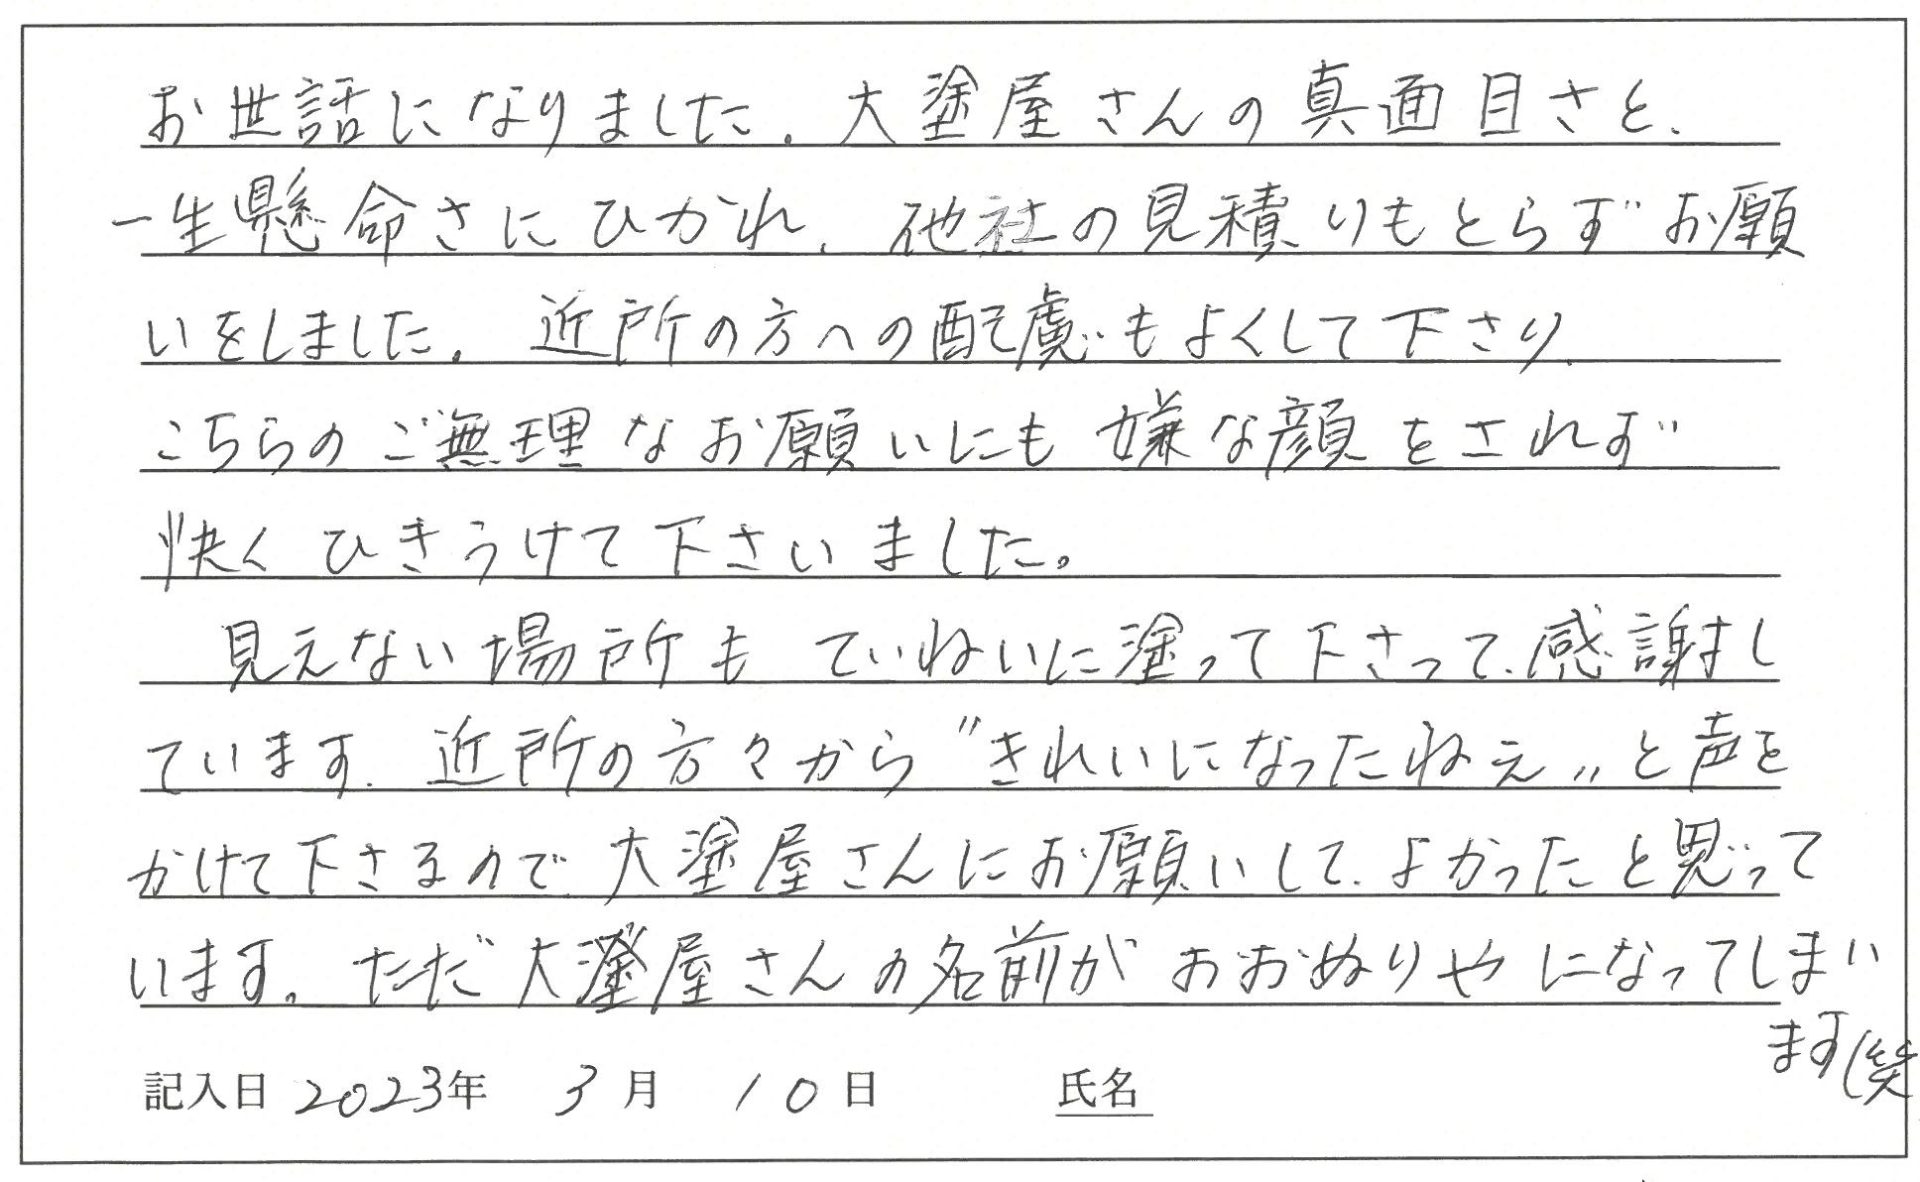 お世話になりました。大塗屋さんの真面目さと、
一生懸命さにひかれ、他社の見積りもとらずお願
いをしました。近所の方への配慮もよくして下さり、
こちらのご無理なお願いにも嫌な顔をされず
快くひきうけて下さいました。
見えない場所もていねいに塗って下さって、感謝し
ています。近所の方々から〝きれいになったねえ〟と声を
かけて下さるので、大塗屋さんにお願いして、よかったと思って
います。ただ大塗屋さんの名前がおおぬりやになってしまい
ます(笑
記入日 2023年 3月 10日 氏名